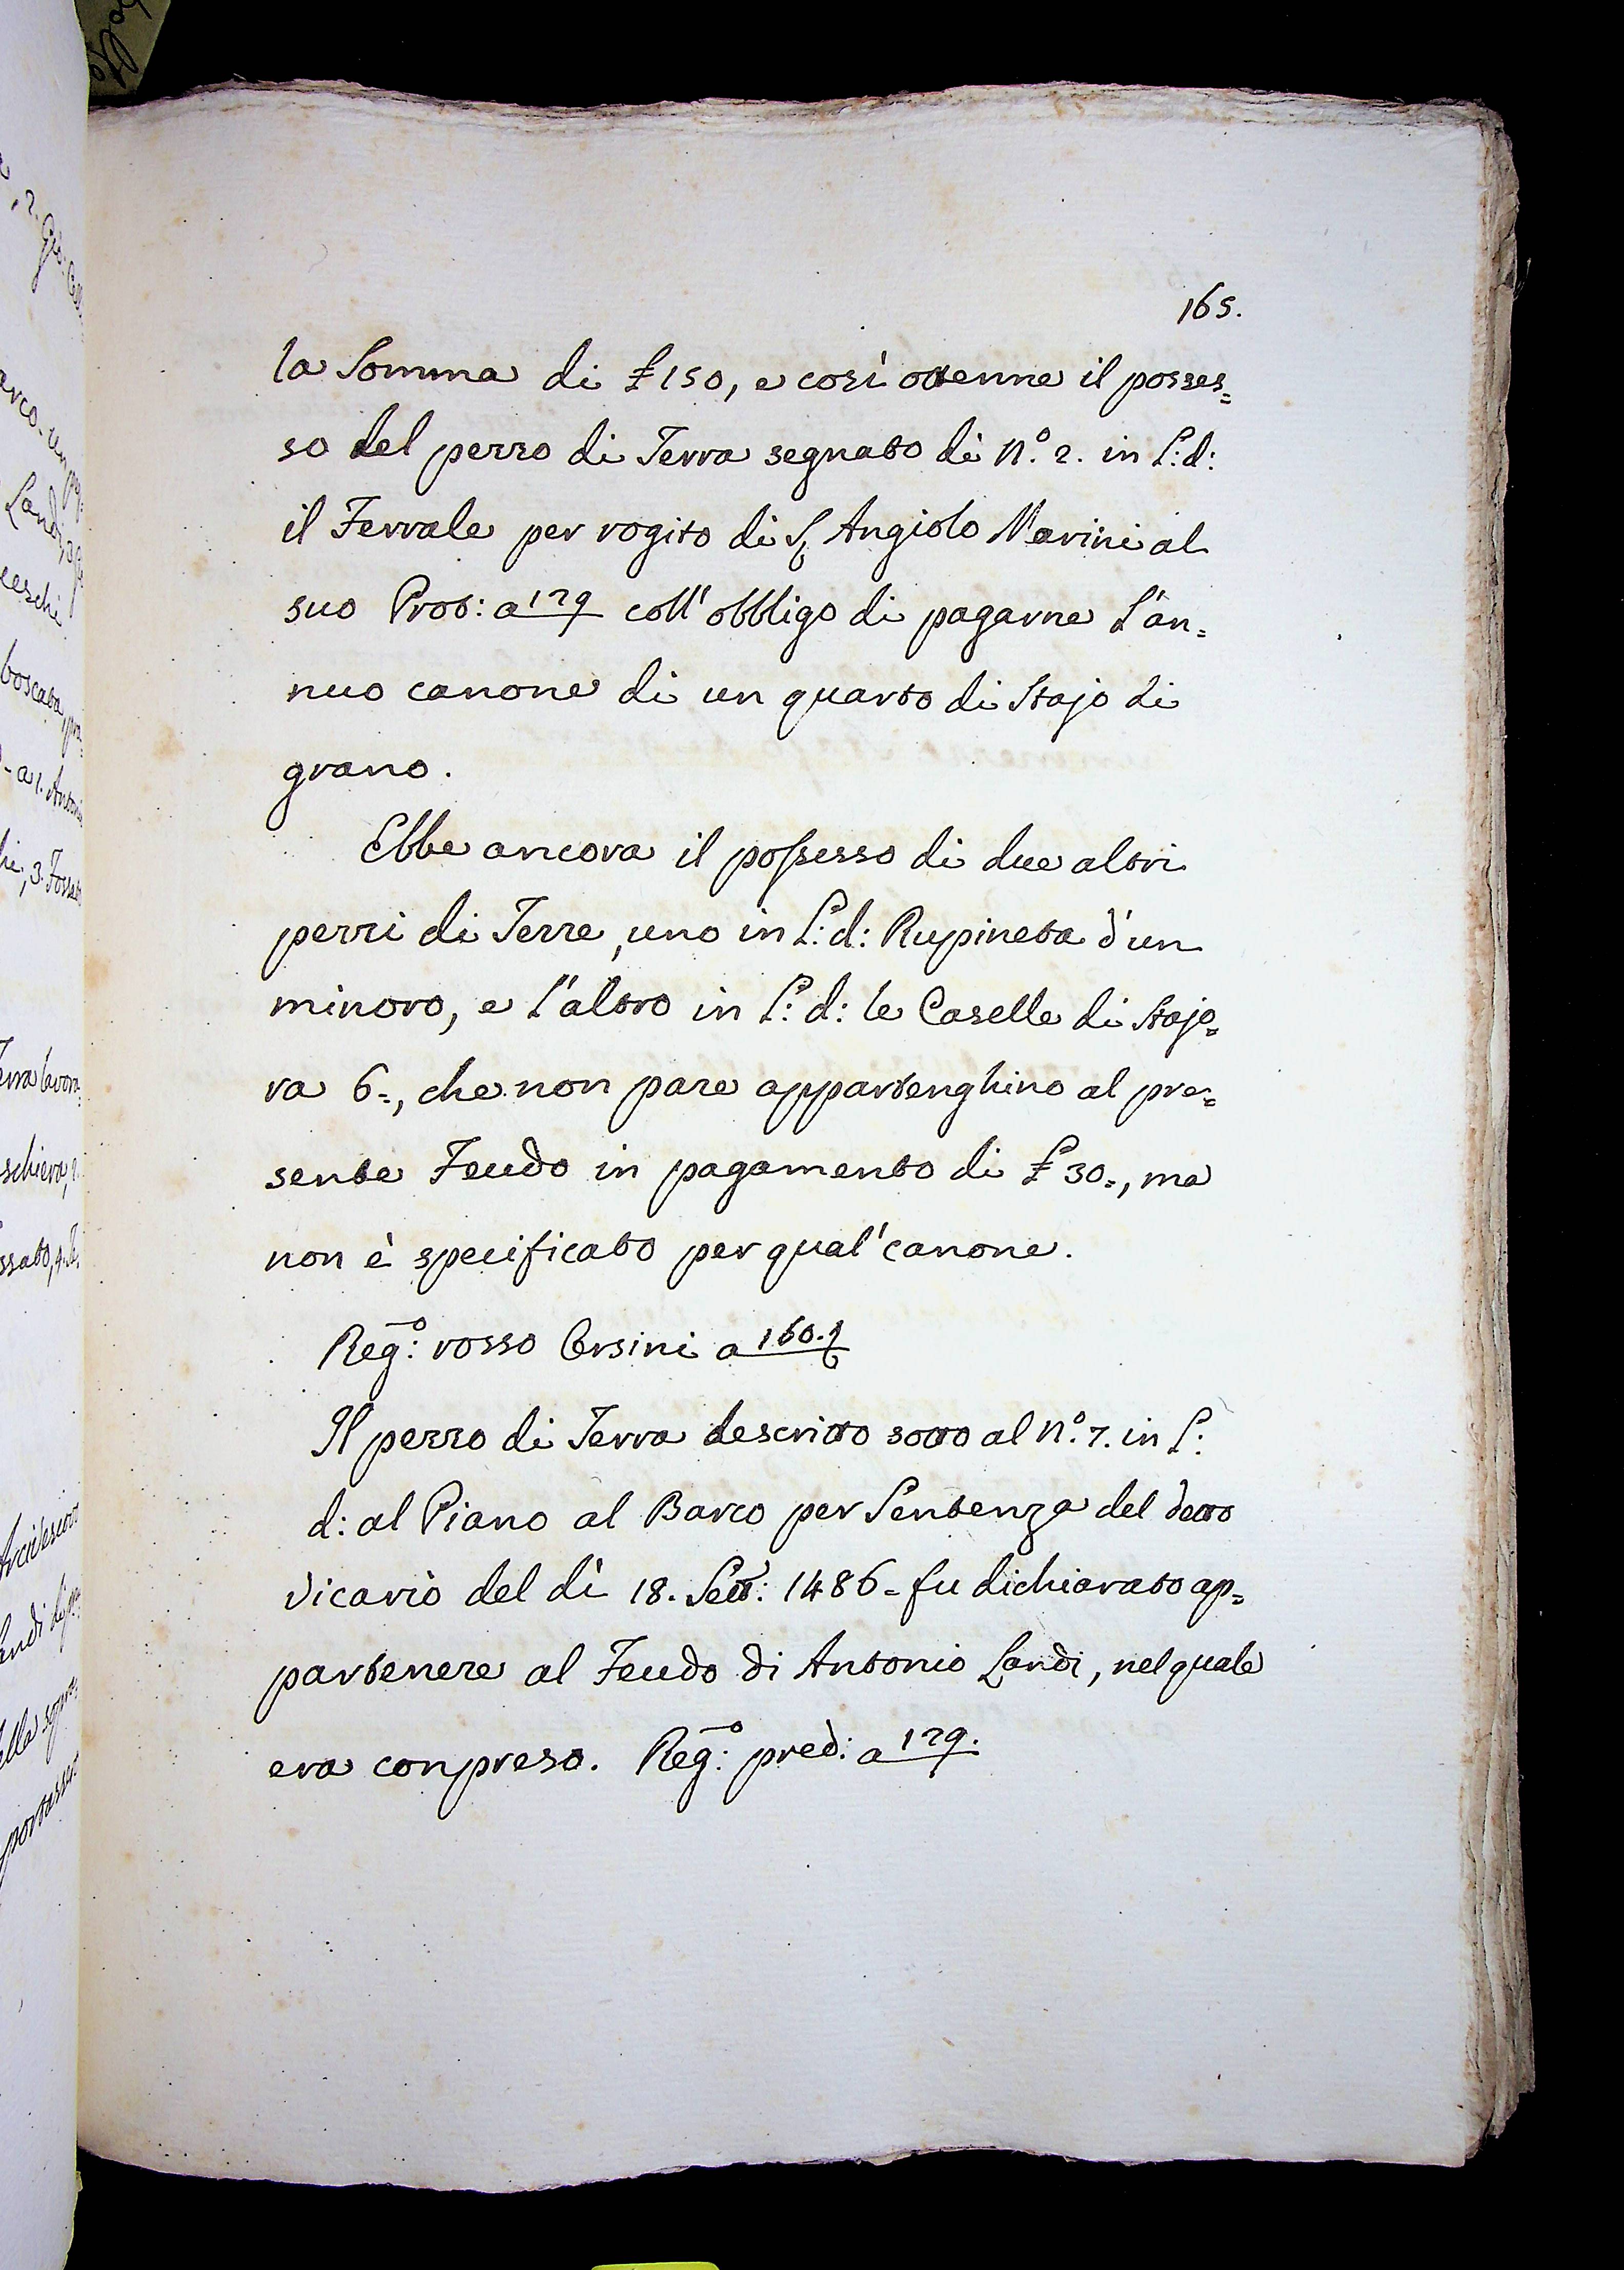 165.
la Somma di £ 150, e così ottenne il posses=
so del pezzo di Terra segnato di N.º 2. in L: d:
il Ferrale per rogito di S. Angiolo Marini al
suo Prot: a 129 coll'obbligo di pagarne l'an=
nuo canone di un quarto di Stajo di
grano.
Ebbe ancora il possesso di due altri
pezzi di Terre, uno in L: d: Rupineta d'un
minoro, e l'altro in L: d: le Caselle di Stajo=
ra 6=, che non pare appartenghino al pre=
sente Feudo in pagamento di £ 30=, ma
non è specificato per qual' canone.
Reg:º rosso Orsini a 160.
Il pezzo di Terra descritto sotto al N.º 7. in L:
d: al Piano al Barco per Sentenza del detto
Vicario del dì 18. Sett: 1486= fu dichiarato ap=
partenere al Feudo di Antonio Landi, nel quale
era conpreso. Reg:º pred: a 129.